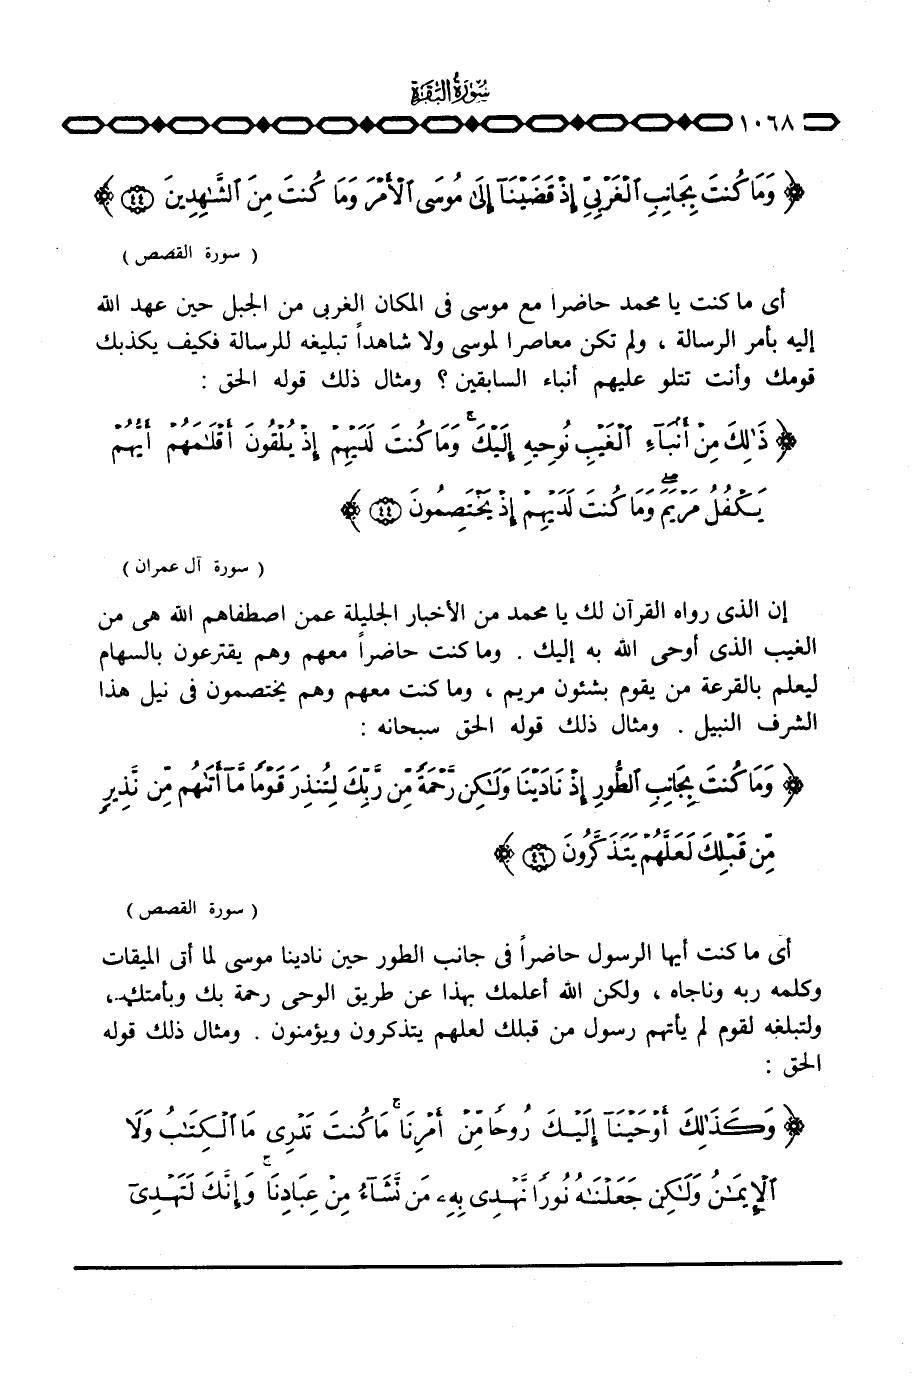 سورة البقرة
١٠٦٨
﴿ وَمَا كُنتَ بِجَانِبِ ٱلْغَرْبِيِّ إِذْ قَضَيْنَآ إِلَىٰ مُوسَى ٱلْأَمْرَ وَمَا كُنتَ مِنَ ٱلشَّٰهِدِينَ ٤٤ ﴾
( سورة القصص )
أى ما كنت يا محمد حاضرا مع موسى فى المكان الغربى من الجبل حين عهد الله
إليه بأمر الرسالة ، ولم تكن معاصرا لموسى ولا شاهداً تبليغه للرسالة فكيف يكذبك
قومك وأنت تتلو عليهم أنباء السابقين ؟ ومثال ذلك قوله الحق :
﴿ ذَٰلِكَ مِنْ أَنۢبَآءِ ٱلْغَيْبِ نُوحِيهِ إِلَيْكَ ۚ وَمَا كُنتَ لَدَيْهِمْ إِذْ يُلْقُونَ أَقْلَٰمَهُمْ أَيُّهُمْ
يَكْفُلُ مَرْيَمَ ۖ وَمَا كُنتَ لَدَيْهِمْ إِذْ يَخْتَصِمُونَ ٤٤ ﴾
( سورة آل عمران )
إن الذى رواه القرآن لك يا محمد من الأخبار الجليلة عمن اصطفاهم الله هى من
الغيب الذى أوحى الله به إليك . وما كنت حاضراً معهم وهم يقترعون بالسهام
ليعلم بالقرعة من يقوم بشئون مريم ، وما كنت معهم وهم يختصمون فى نيل هذا
الشرف النبيل . ومثال ذلك قوله الحق سبحانه :
﴿ وَمَا كُنتَ بِجَانِبِ ٱلطُّورِ إِذْ نَادَيْنَا وَلَٰكِن رَّحْمَةً مِّن رَّبِّكَ لِتُنذِرَ قَوْمًا مَّآ أَتَىٰهُم مِّن نَّذِيرٍ
مِّن قَبْلِكَ لَعَلَّهُمْ يَتَذَكَّرُونَ ٤٦ ﴾
( سورة القصص )
أى ما كنت أيها الرسول حاضراً فى جانب الطور حين نادينا موسى لما أتى الميقات
وكلمه ربه وناجاه ، ولكن الله أعلمك بهذا عن طريق الوحى رحمة بك وبأمتك ،
ولتبلغه لقوم لم يأتهم رسول من قبلك لعلهم يتذكرون ويؤمنون . ومثال ذلك قوله
الحق :
﴿ وَكَذَٰلِكَ أَوْحَيْنَآ إِلَيْكَ رُوحًا مِّنْ أَمْرِنَا ۚ مَا كُنتَ تَدْرِى مَا ٱلْكِتَٰبُ وَلَا
ٱلْإِيمَٰنُ وَلَٰكِن جَعَلْنَٰهُ نُورًا نَّهْدِى بِهِۦ مَن نَّشَآءُ مِنْ عِبَادِنَا ۚ وَإِنَّكَ لَتَهْدِىٓ